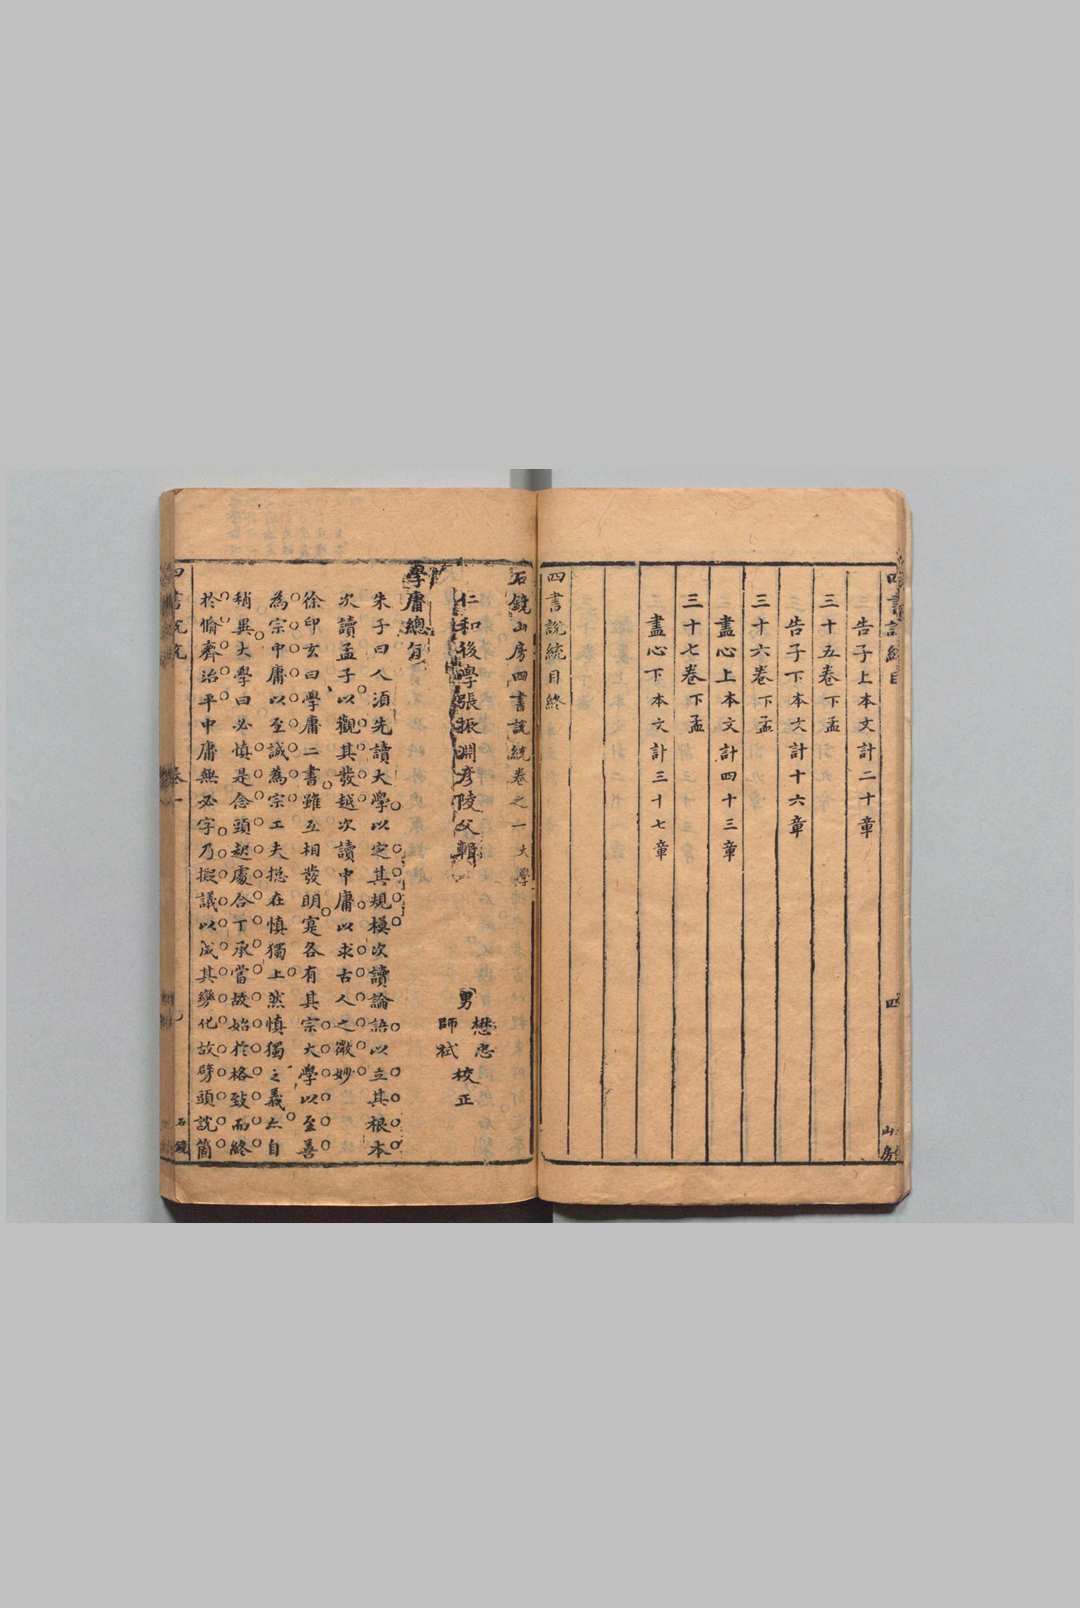 告子上本文計二十章
三十五卷下孟
告子下本文計十六章
三十六卷下孟
盡心上本文計四十三章
三十七卷下孟
盡心下本文計三十七章
四書說統目終
四
山房
石鏡山房四書說統卷之一大學
仁和後學張振淵彥陵父輯
男
懋忠
師栻
校正
學庸總旨
朱子曰人須先讀大學以定其規模次讀論語以立其根本
次讀孟子以觀其發越次讀中庸以求古人之微妙
徐印玄曰學庸二書雖互相發明寔各有其宗大學以至善
為宗中庸以至誠為宗工夫揔在慎獨上然慎獨之義亦自
稍異大學曰必慎是念頭起處合下承當故始於格致而終
於脩齊治平中庸無必字乃擬議以成其變化故劈頭說箇
四書說統
卷一
石鏡